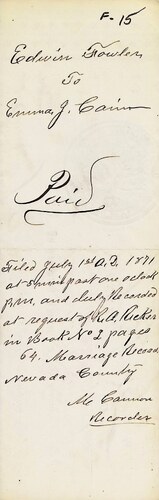 F-15
Edwin Fowler
To
Emma J. Cain
Paid
Filed July 1st A.D. 1871
at 5 min past one o'clock
P.M. and duly Recorded
at request of R.A. Ricker
in Book No 2, pages
64. Marriage Record
Nevada County
Mc Cannon
Recorder